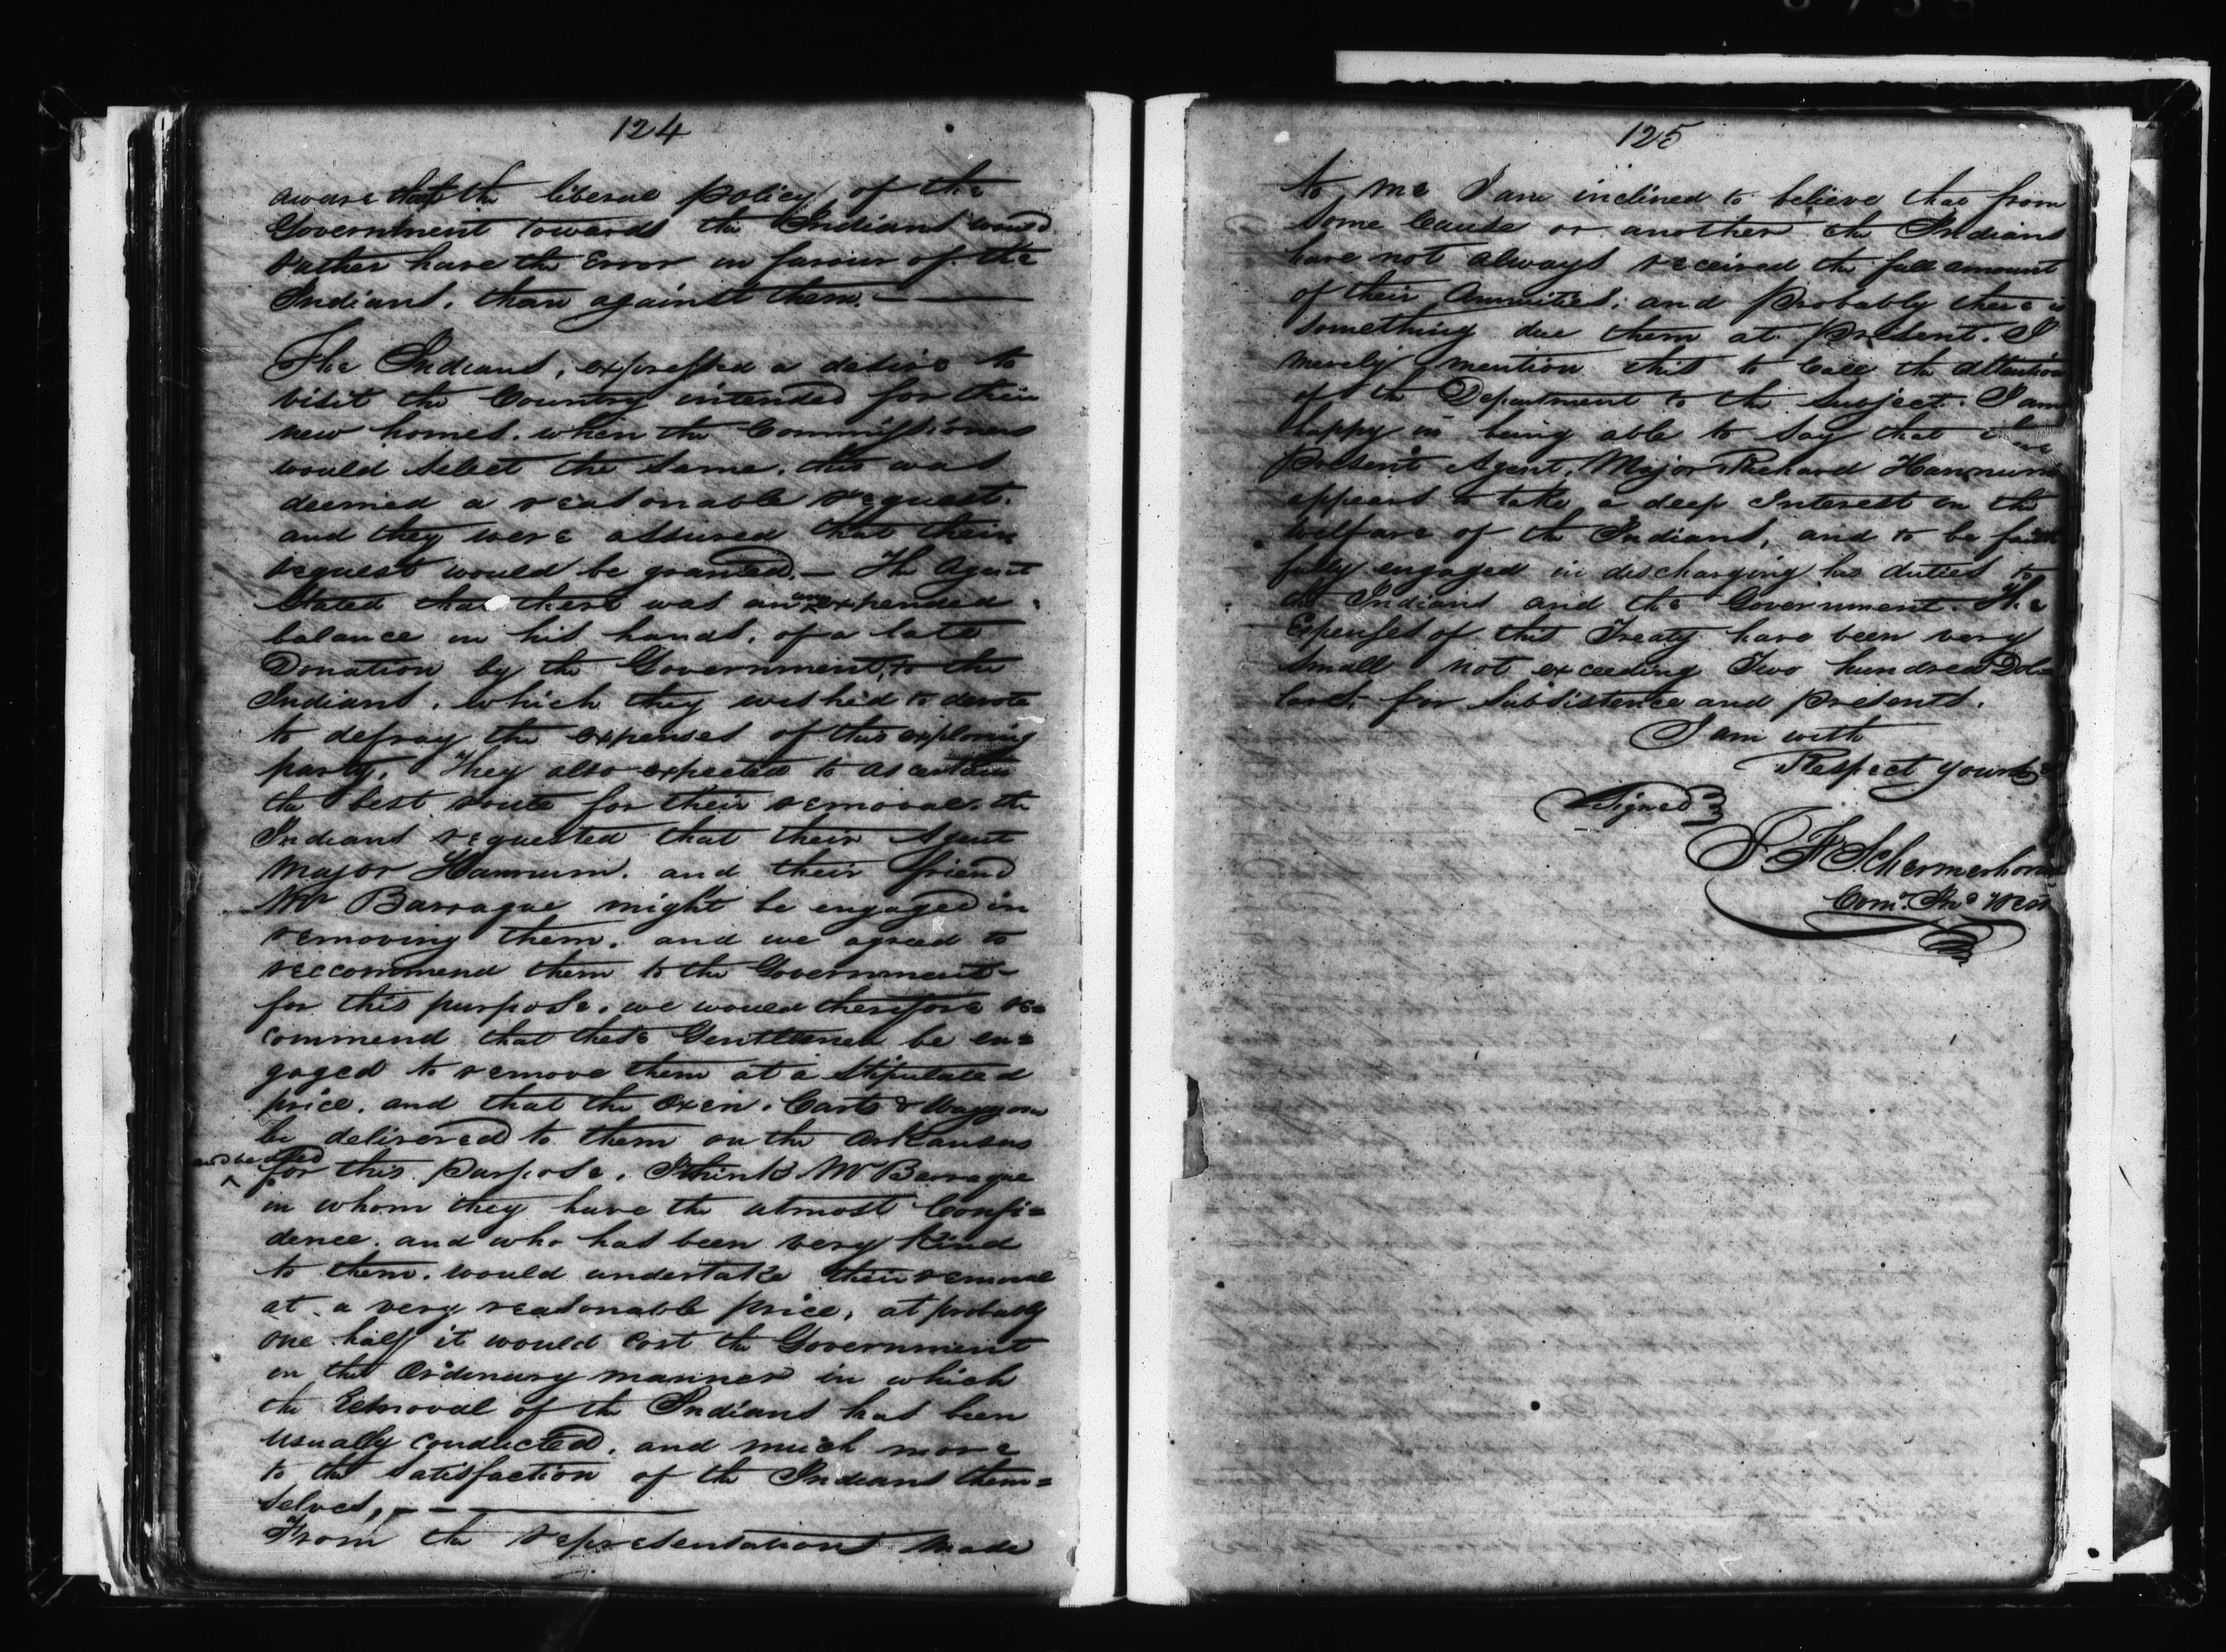 124
aware that the liberal policy of the
Government towards the Indians would
rather have the Error in favour of the
Indians, than against them. —
The Indians, expressed a desire to
visit the Country intended for their
new homes, when the Commissioners
would select the same, this was
deemed a reasonable request,
and they were assured that their
request would be granted. — The Agent
stated that there was an unexpended
balance in his hands, of a late
Donation by the Government, to the
Indians, which they wished to devote
to defray the expenses of this exploring
party. They also expected to ascertain
the best route for their removal. the
Indians requested that their Agent
Major Hannum. and their friend
Mr Barraque might be engaged in
removing them. and we agreed to
reccommend them to the Government
for this purpose, we would therefore re=
commend that these Gentlemen be en=
gaged to remove them at a stipulated
price. and that the Oxen, Carts & Waggons
be delivered to them on the Arkansas
and be used
for this Purpose. I think Mr Barraque
in whom they have the utmost Confi=
dence. and who has been very kind
to them. would undertake their removal
at a very reasonable price, at probably
one half it would cost the Government
in the Ordinary manner in which
the Removal of the Indians has been
usually conducted. and much more
to the satisfaction of the Indians them=
selves, — —
From the representations made
125
to me I am inclined to believe that from
some Cause or another the Indians
have not always received the full amount
of their Annuities; and Probably there is
something due them at Present. I
merely mention this to Call the attention
of the Department to the Subject. I am
happy in being able to say that the
Present Agent, Major Richard Hannum
appears to take a deep Interest in the
welfare of the Indians, and to be faith
fully engaged in discharging his duties to
the Indians and the Government. The
Expenses of this Treaty have been very
small not exceeding Two hundred Dol
lars, for Subsistence and presents.
I am with
Respect yours &
Signed
J. F. Schermerhorn
Com. Ind West